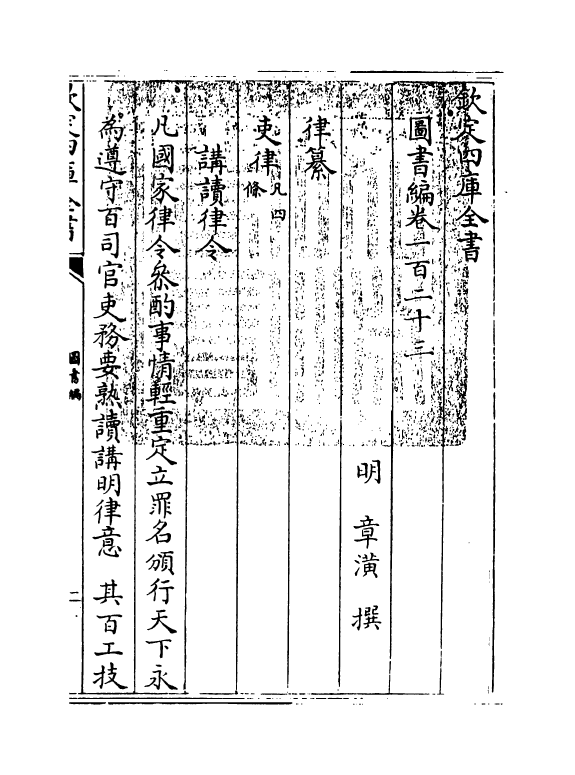 欽定四庫全書
圖書編卷一百二十三
明 章潢 撰
律纂
吏律凡四條
講讀律令
凡國家律令叅酌事情輕重定立罪名頒行天下永
為遵守百司官吏務要熟讀講明律意 其百工技
欽定四庫全書
圖書編